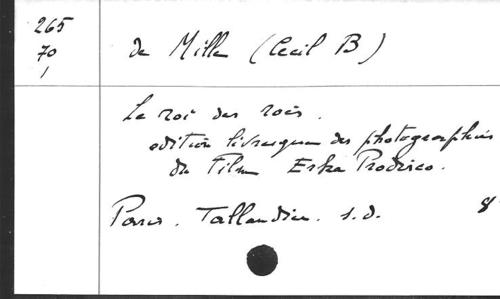 265
70
1
de Mille (Cecil B)
Le roi des rois.
édition livresque des photographies
du Film Erka Prodisco.
Paris. Tallandier. s.d. 8°